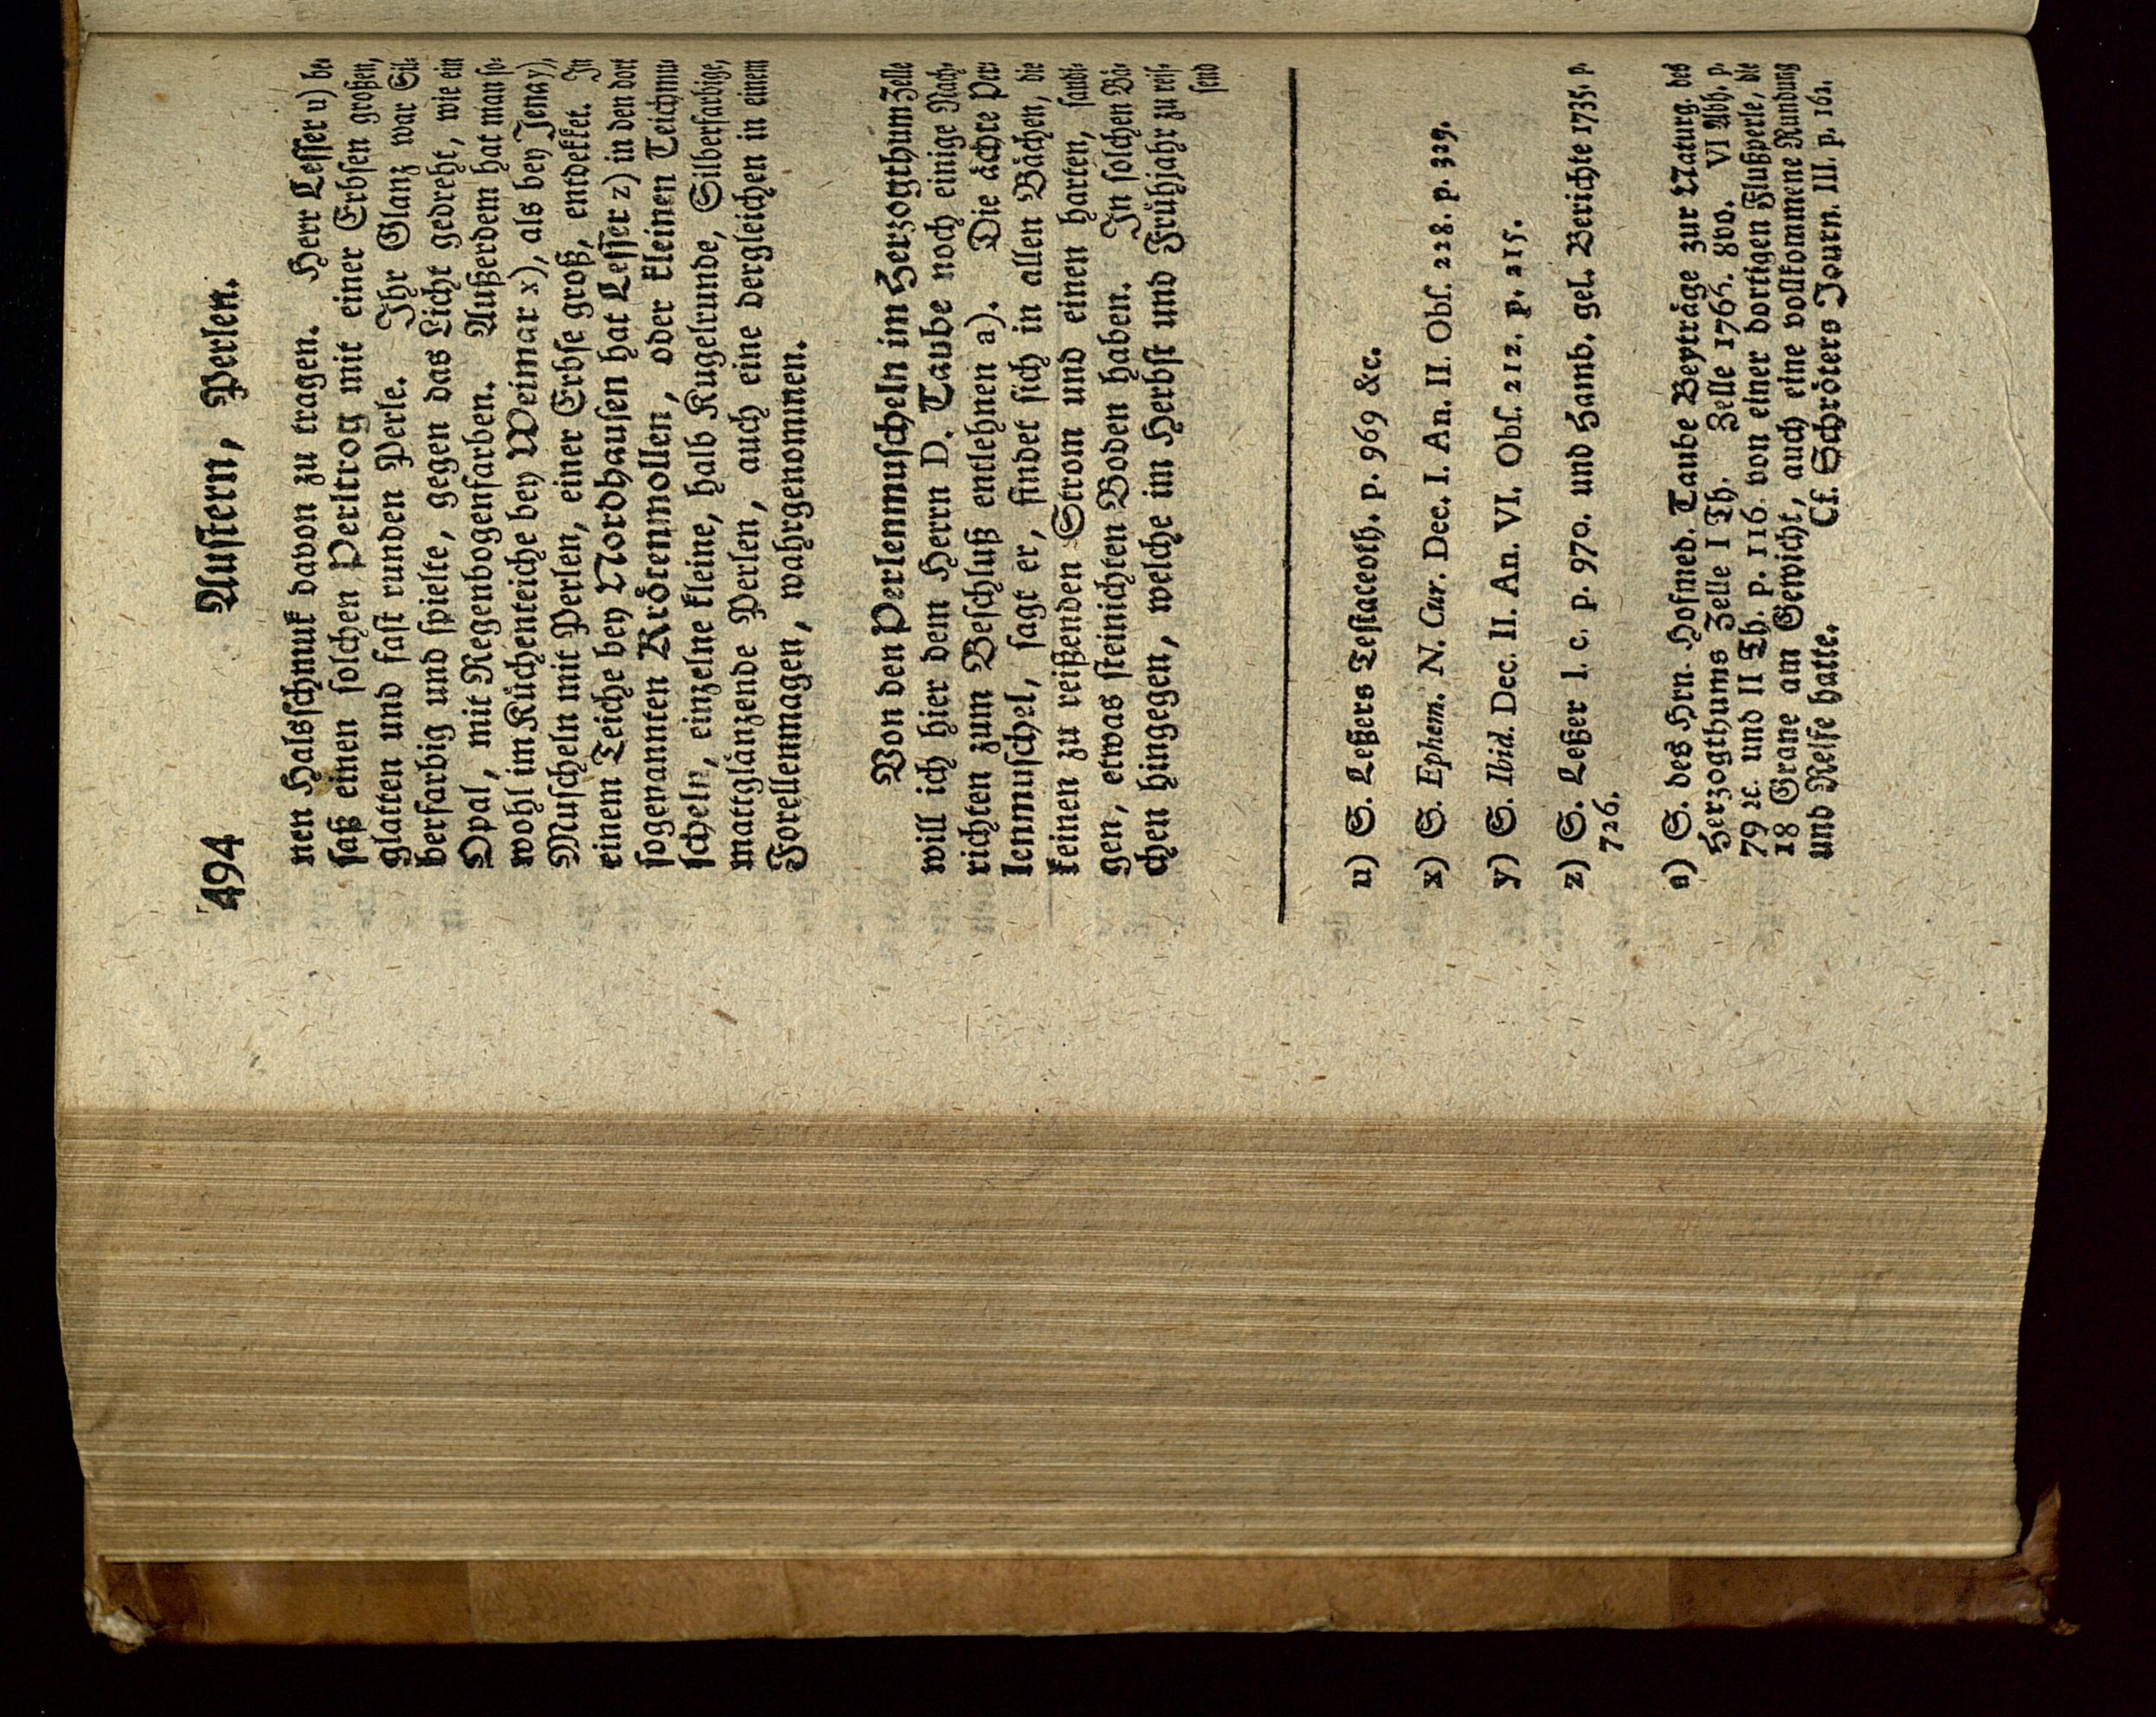 494 Austern, Perlen.
nen Halsschmuk davon zu tragen. Herr Lesser u) be-
saß einen solchen Perltrog mit einer Erbsen großen,
glatten und fast runden Perle. Ihr Glanz war Sil-
berfarbig und spielte, gegen das Licht gedreht, wie ein
Opal, mit Regenbogenfarben. Außerdem hat man so-
wohl im Küchenteiche bey Weimar x), als bey Jena y),
Muscheln mit Perlen, einer Erbse groß, entdekket. In
einem Teiche bey Nordhausen hat Lesser z) in den dort
sogenannten Krötenmollen, oder kleinen Teichmu-
scheln, einzelne kleine, halb Kugelrunde, Silberfarbige,
mattglänzende Perlen, auch eine dergleichen in einem
Forellenmagen, wahrgenommen.
Von den Perlenmuscheln im Herzogthum Zelle
will ich hier dem Herrn D. Taube noch einige Nach-
richten zum Beschluß entlehnen a). Die ächte Per-
lenmuschel, sagt er, findet sich in allen Bächen, die
keinen zu reißenden Strom und einen harten, sandi-
gen, etwas steinichten Boden haben. In solchen Bä-
chen hingegen, welche im Herbst und Frühjahr zu reis-
send
u) S. Leßers Testaceoth. p. 969 &c.
x) S. Ephem. N. Cur. Dec. I. An. II. Obs. 228. p. 329.
y) S. Ibid. Dec. II. An. VI. Obs. 212. p. 215.
z) S. Leßer l. c. p. 970. und Hamb. gel. Berichte 1735. p.
726.
a) S. des Hrn. Hofmed. Taube Beyträge zur Naturg. des
Herzogthums Zelle I Th. Zelle 1766. 8vo. VI Abh. p.
79 ꝛc. und II Th. p. 116. von einer dortigen Flußperle, die
18 Grane am Gewicht, auch eine vollkommene Rundung
und Reife hatte. Cf. Schröters Journ. III. p. 162.